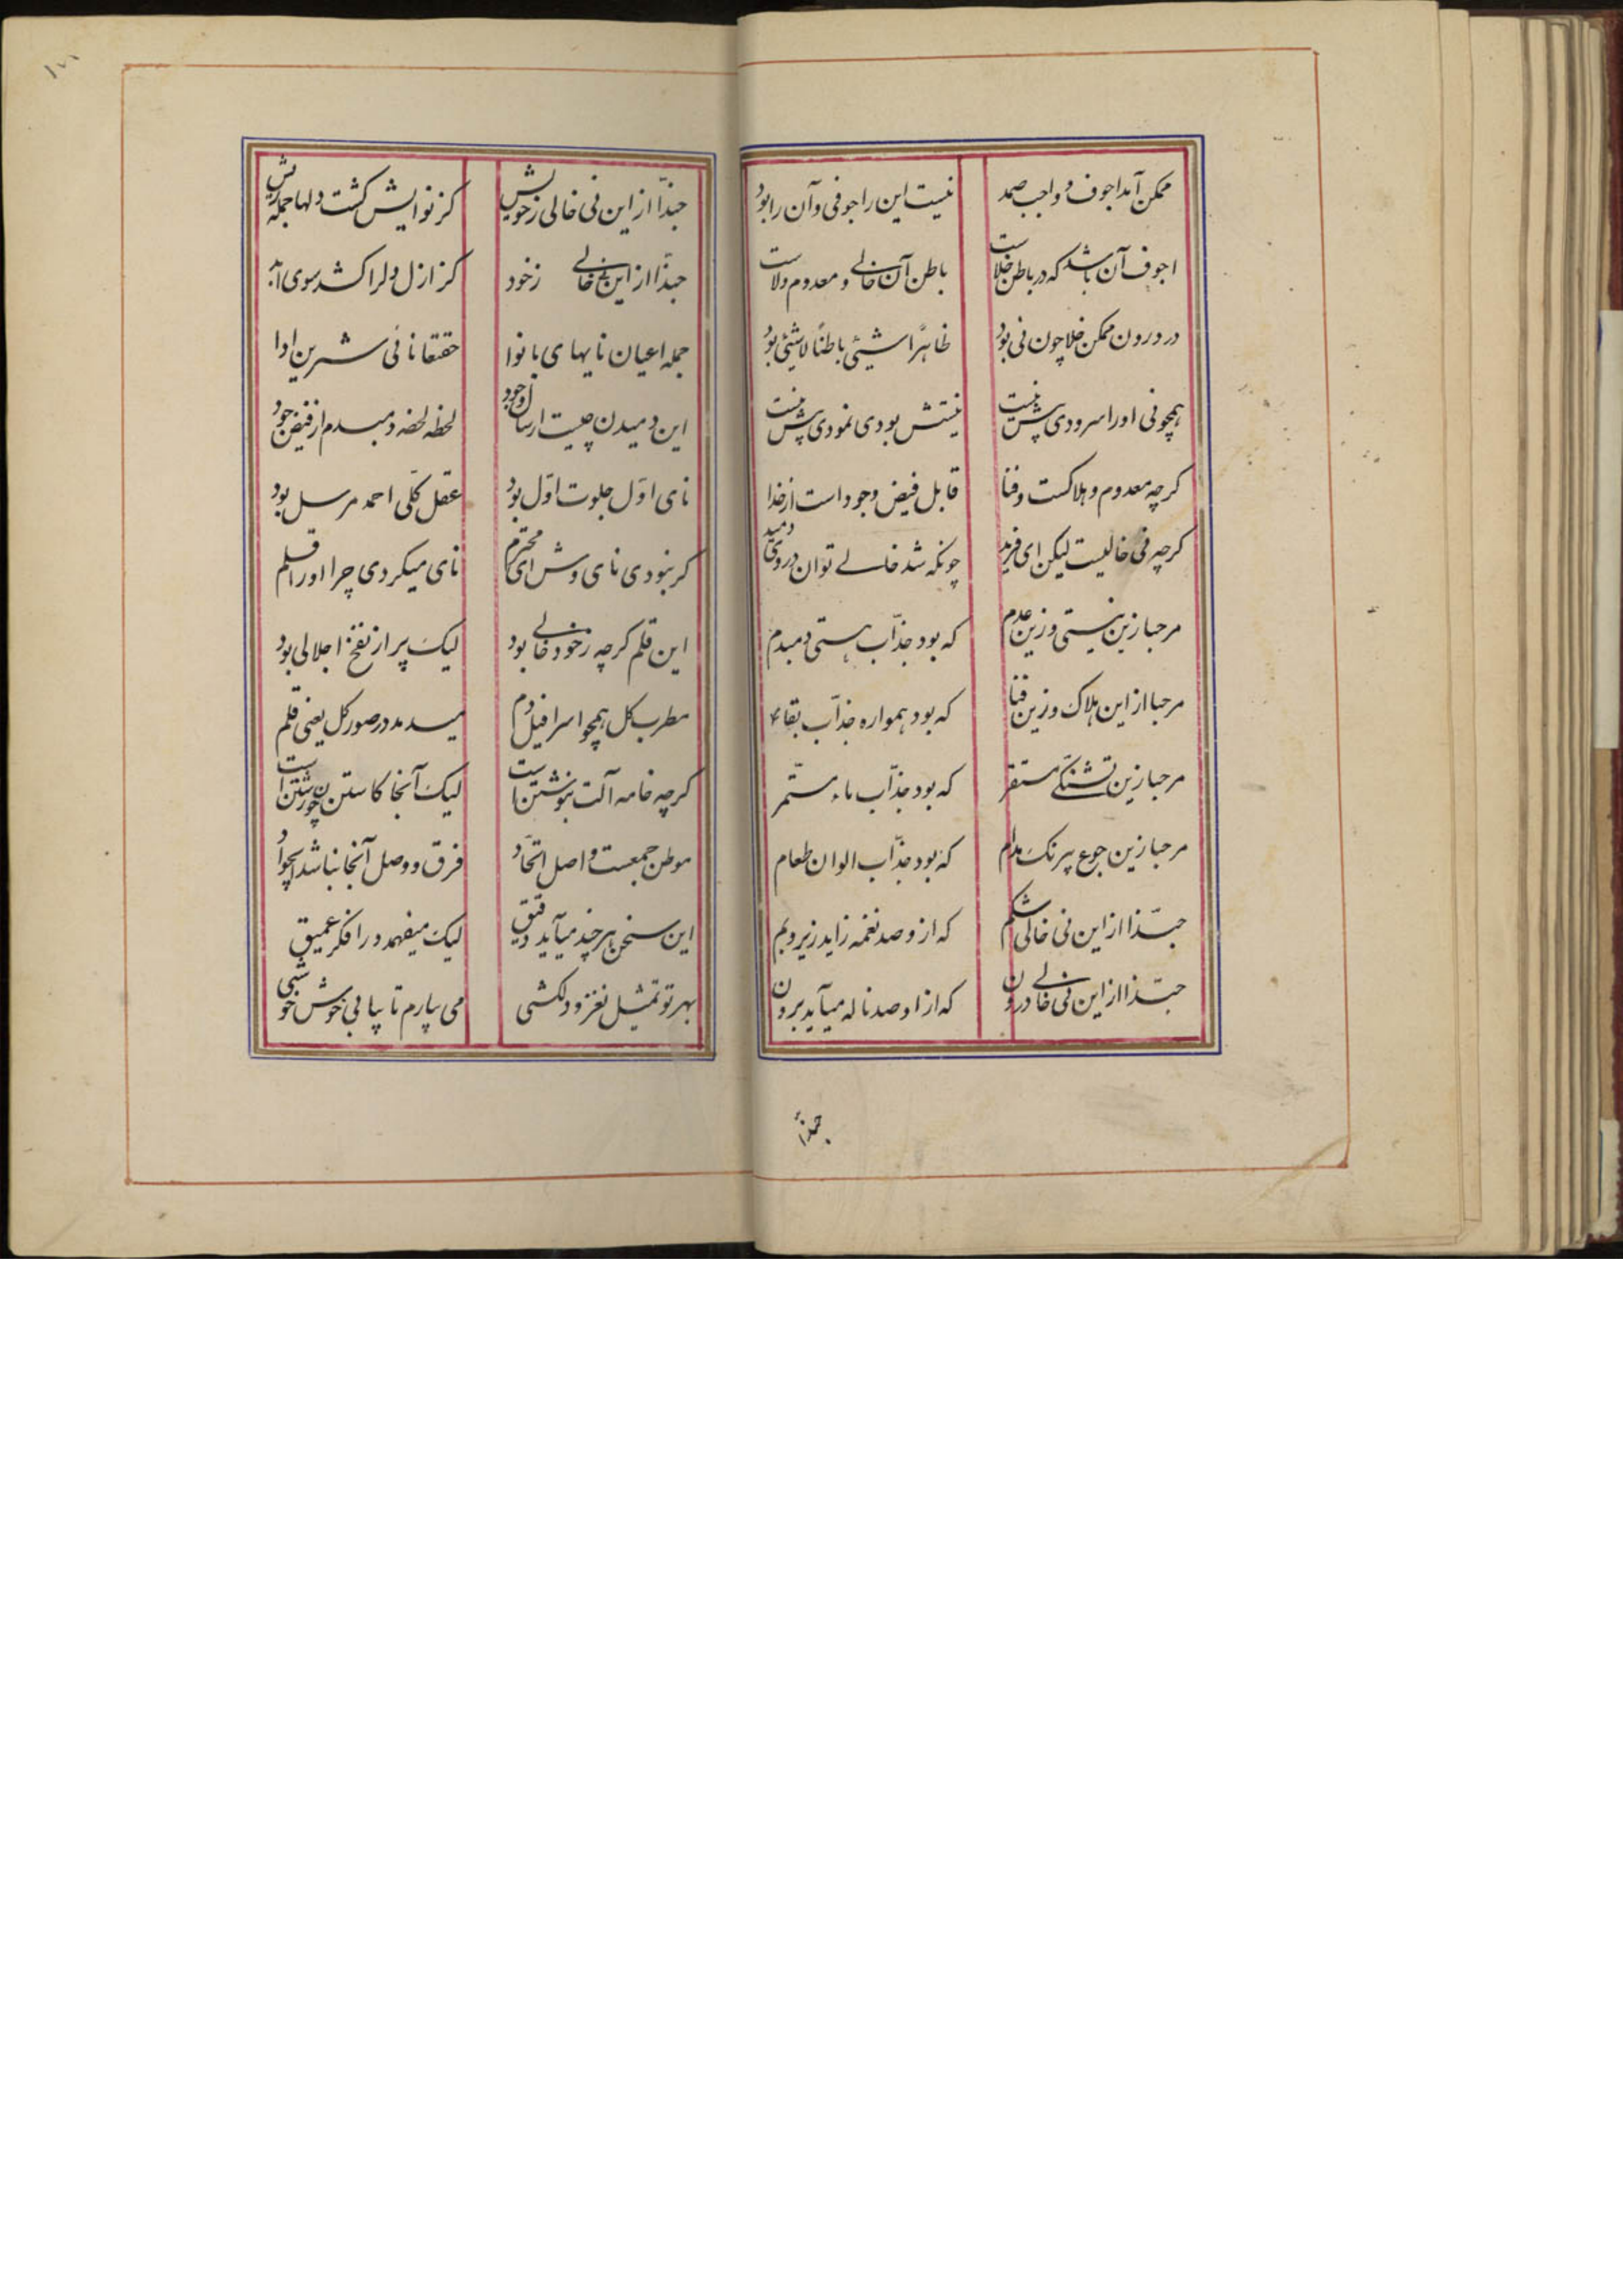 ممکن آمد اجوف و واجب صمد نیست این را جوفی و آن را بود
اجوف آن باشد که در باطن خلاست باطن آن خالی و معدوم ولاست
در درون ممکن خلا چون نی بود ظاهراً شیئی باطناً لاشیئی بود
همچو نی او را سرودی بیش نیست نیستش بودی نمودی بیش نیست
کرچه معدوم و هلاکست و فنا قابل فیض وجود است از خدا
کرچه نی خالیست لیکن ای فرید چونکه شد خالی توان در وی دمید
مرحبا زین نیستی و زین عدم که بود جذّاب هستی دمبدم
مرحبا از این هلاک و زین فنا که بود همواره جذّاب بقاء
مرحبا زین تشنکی مستقر که بود جذّاب ماء مستمّر
مرحبا زین جوع مدام که بود جذّاب الوان طعام
حبّذا از این نی خالی شکم که از و صد نغمه زاید زیر و بم
حبّذا از این نی خالی درون که از او صد ناله میآید برون
حبذا
حبذّا از این نی خالی ز خویش کز نوایش کشت دلها جمله ریش
حبذّا از این نی خالی ز خود کز ازل دل را کشد سوی ابد
جمله اعیان نایهای با نوا حقتعا نائی شیرین ادا
این دمیدن چیست ارسال وجود لحظه لحضه دمبدم از فیض جود
نای اوّل جلوت اوّل بود عقل کلّی احمد مرسل بود
کر نبودی نای وش ای محترم نای میکردی چرا او را قلم
این قلم کرچه ز خود خالی بود لیک پر از نفخ اجلالی بود
مطرب کل همچو اسرافیل دم میدمد در صور کل یعنی قلم
کرچه خامه آلت بنوشتن است لیک آنجا کاستن چون رشتن است
موطن جمعست و اصل اتّحاد فرق و وصل آنجا نباشد ایجواد
این سخن هر چند میآید دقیق لیک میفهمد و را فکر عمیق
بهر تو تمثیل نغز و دلکشی می بیارم تا بیابی خوش خوشی